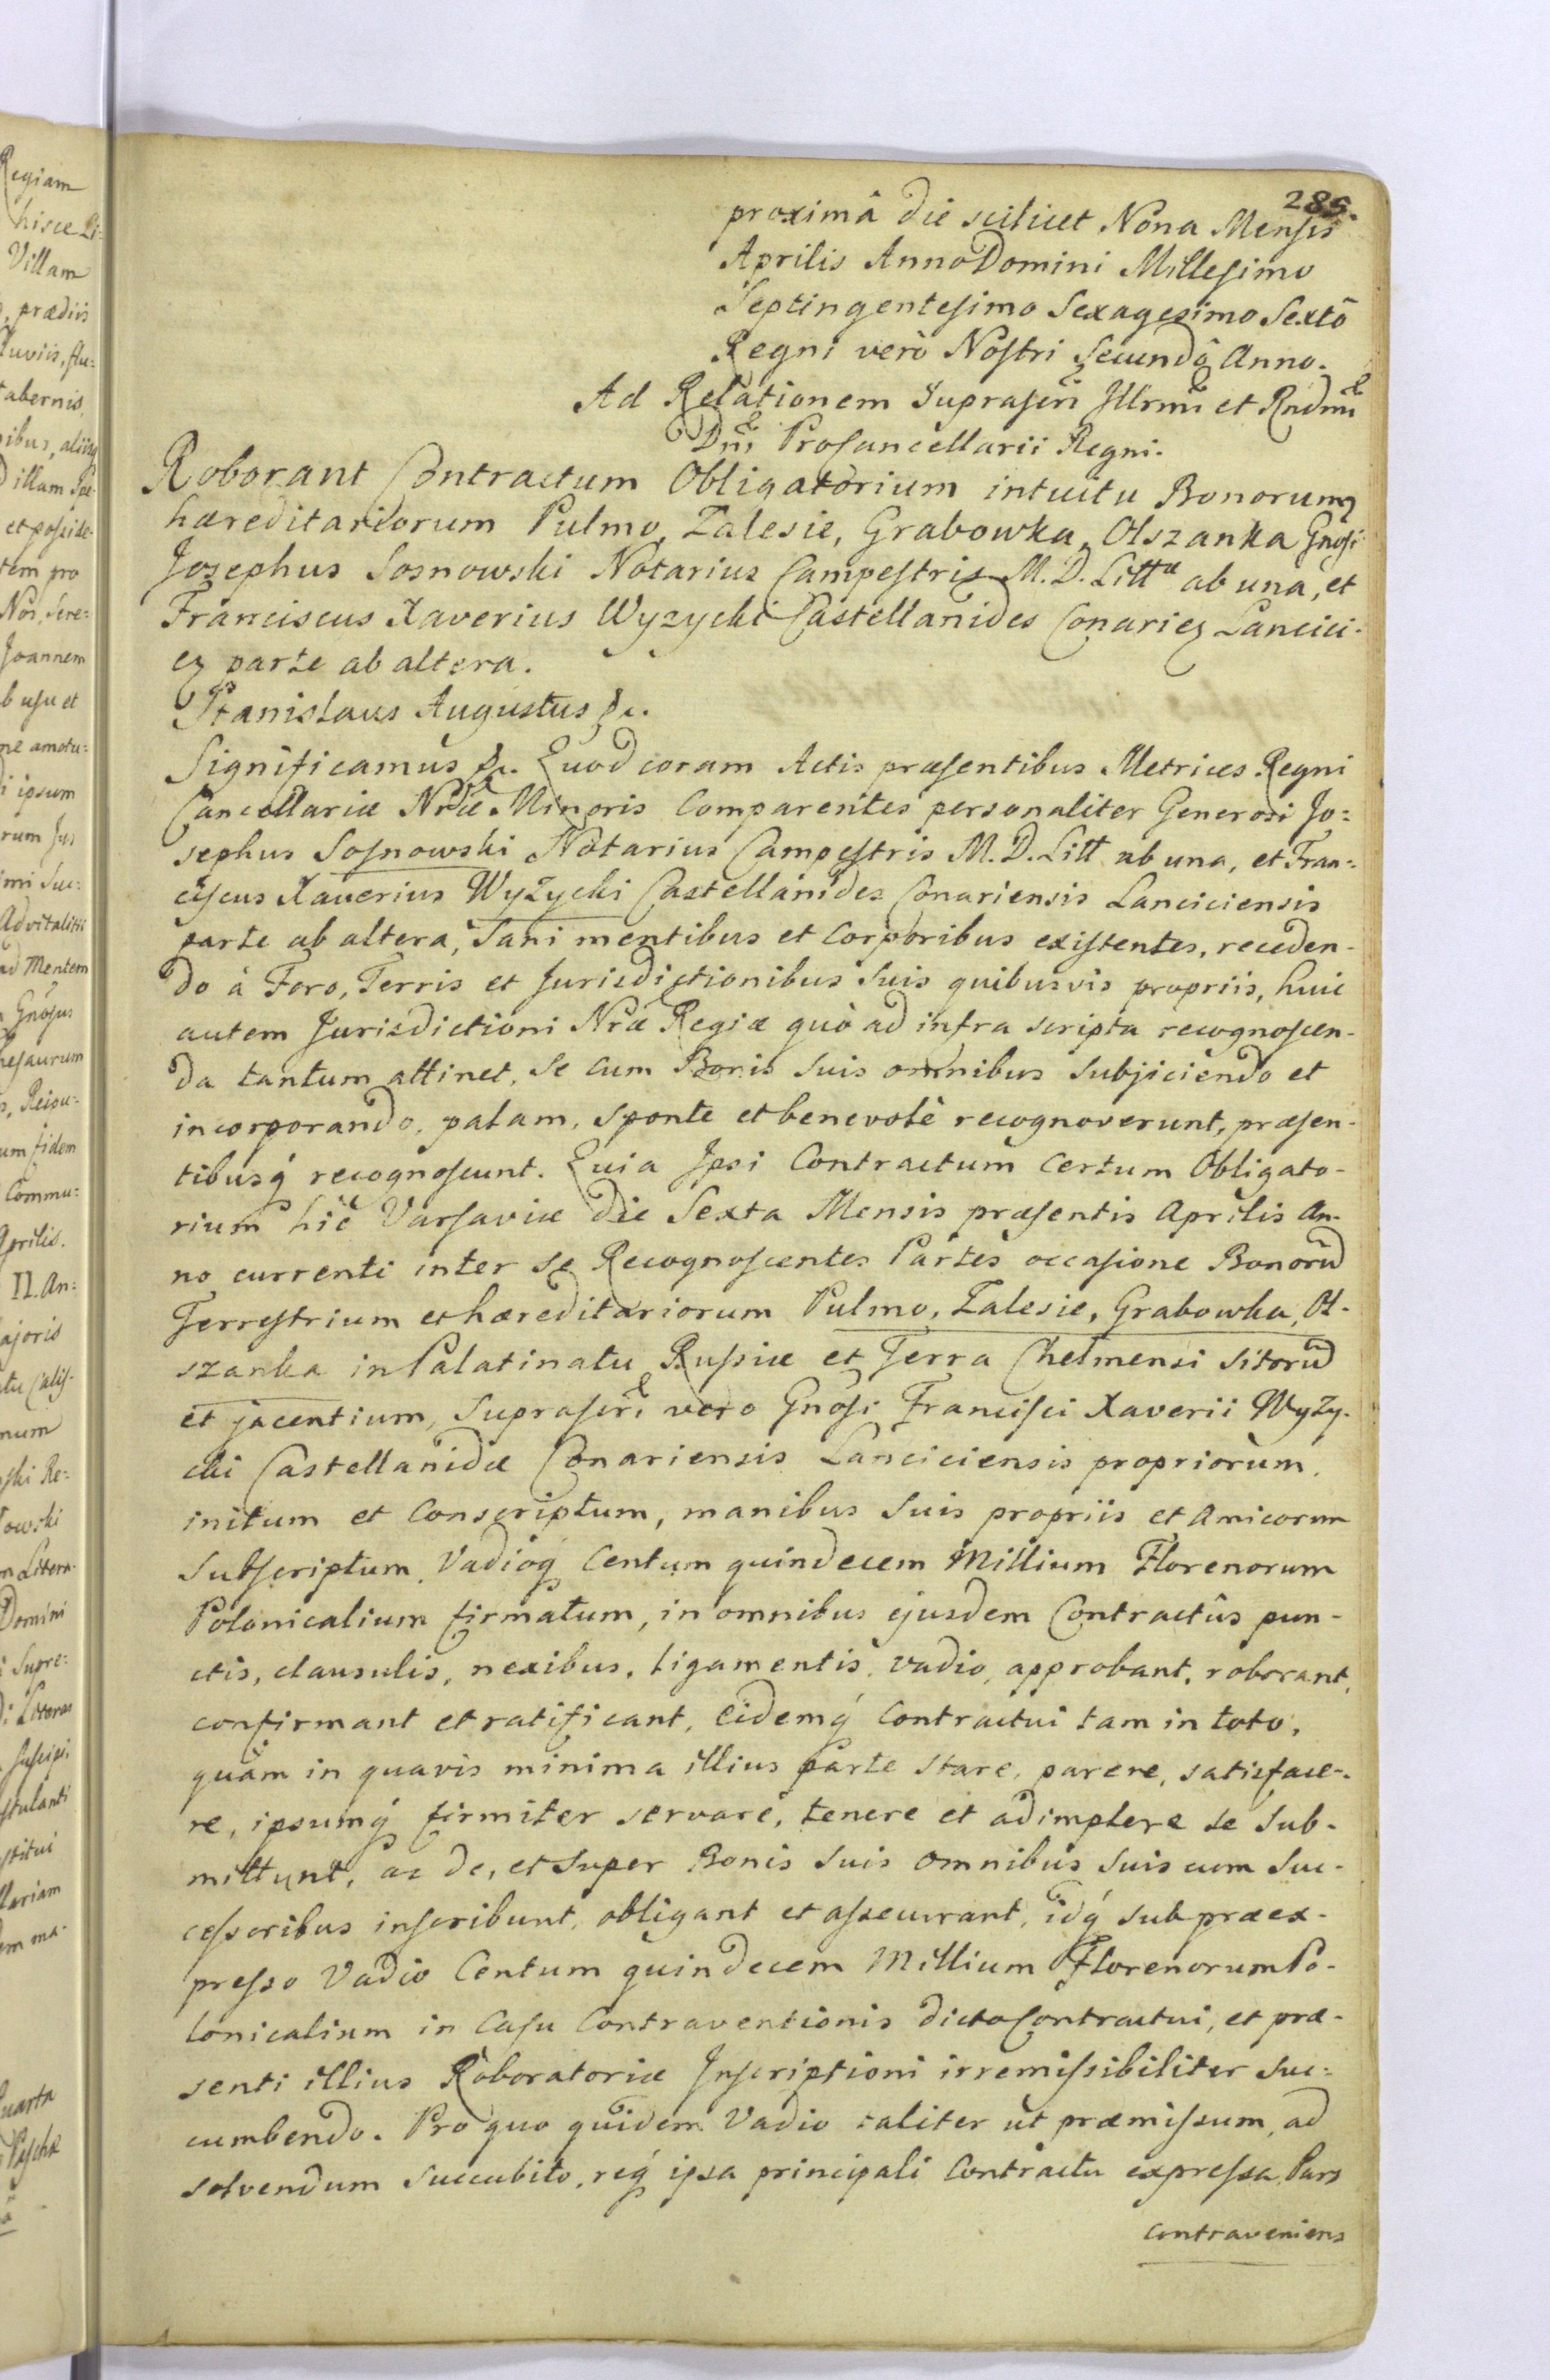 285.
proximâ die scilicet Nona Mensis
Aprilis Anno Domini Millesimo
Septingentesimo Sexagesimo Sextô
Regni verò Nostri Secundô Anno.
Ad Relationem Suprascri Illrmi et Rndmi
Dni Procancellarii Regni.
Roborant Contractum Obligatorium intuitu Bonorum
hæreditariorum Pulmo, Zalesie, Grabowka, Olszanka Gnosi
Josephus Sosnowski Notarius Campestris M. D. Littæ ab una, et
Franciscus Xaverius Wyzycki Castellanides Conarien Lancici-
en parte ab altera.
Stanislaus Augustus &c.
Significamus &c. Quod coram Actis præsentibus Metrices Regni
Cancellariæ Nræ Minoris Comparentes personaliter Generosi Jo=
sephus Sosnowski Notarius Campestris M. D. Litt ab una, et Fran=
ciscus Xaverius Wyżycki Castellanides Conariensis Lanciciensis
parte ab altera, Sani mentibus et Corporibus existentes, receden-
do à Foro, Terris et Jurisdictionibus Suis quibusvis propriis, huic
autem Jurisdictioni Nræ Regiæ quò ad infra scripta recognoscen-
da tantum attinet, Se cum Bonis Suis omnibus Subjiciendo et
incorporando, palam, Sponte et benevolè recognoverunt, præsen-
tibusq́ recognoscunt. Quia Ipsi Contractum Certum Obligato-
rium hic Varsaviæ die Sexta Mensis præsentis Aprilis An-
no currenti inter Se Recognoscentes Partes occasione Bonorũ
Terrestrium et hæreditariorum Pulmo, Zalesie, Grabowka, Ol-
szanka in Palatinatu Russiæ et Terra Chelmensi Sitorũ
et jacentium, Suprascri vero Gnosi Francisci Xaverii Wyży-
cki Castellanidæ Conariensis Lanciciensis propriorum,
initum et Conscriptum, manibus Suis propriis et Amicorum
Subscriptum, Vadioq́ Centum quindecem Millium Florenorum
Polonicalium firmatum, in omnibus ejusdem Contractûs pun-
ctis, clausulis, nexibus, ligamentis, vadio, approbant, roborant,
confirmant et ratificant, Eidemq́ Contractui tam in toto,
quàm in quavis minima illius parte Stare, parere, satisface-
re, ipsumq́ firmiter servare, tenere et adimplere se Sub-
mittunt, ac de, et Super Bonis Suis Omnibus Suis cum Suc-
cessoribus inscribunt, obligant et assecurant, idq́ Sub præex-
presso Vadio Centum quindecem Millium Florenorum Po-
lonicalium in Casu Contraventionis dicto Contractui, et præ-
senti illius Roboratoriæ Inscriptioni irremissibiliter Suc=
cumbendo. Pro quo quidem Vadio taliter ut præmissum, ad
solvendum Succubito, req́ ipsa principali Contractu expressa, Pars
contraveniens